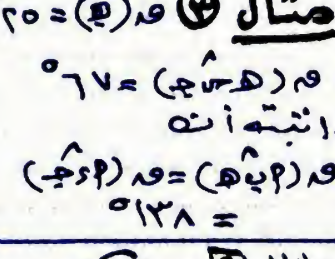 مثال ③ ق (هـ) = ٢٥
ق (هـ س^ جـ) = ٦٧°
اثبت أن
ق (م ب^ هـ) = ق (م ء^ جـ)
= ١٣٨°